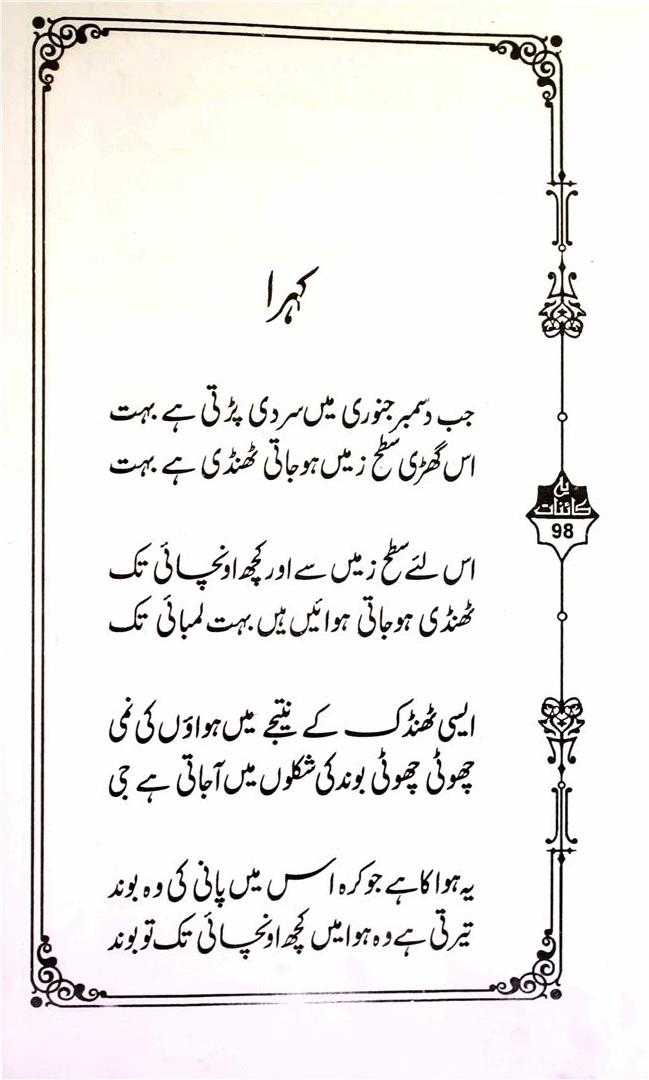 کہرا
جب دسمبر جنوری میں سردی پڑتی ہے بہت
اس گھڑی سطح زمیں ہوجاتی ٹھنڈی ہے بہت
اس لئے سطح زمیں سے اور کچھ اونچائی تک
ٹھنڈی ہوجاتی ہوائیں ہیں بہت لمبائی تک
ایسی ٹھنڈک کے نتیجے میں ہواؤں کی نمی
چھوٹی چھوٹی بوند کی شکلوں میں آجاتی ہے جی
یہ ہوا کا ہے جو کرہ اس میں پانی کی وہ بوند
تیرتی ہے وہ ہوا میں کچھ اونچائی تک تو بوند
یہ
کائنات
98